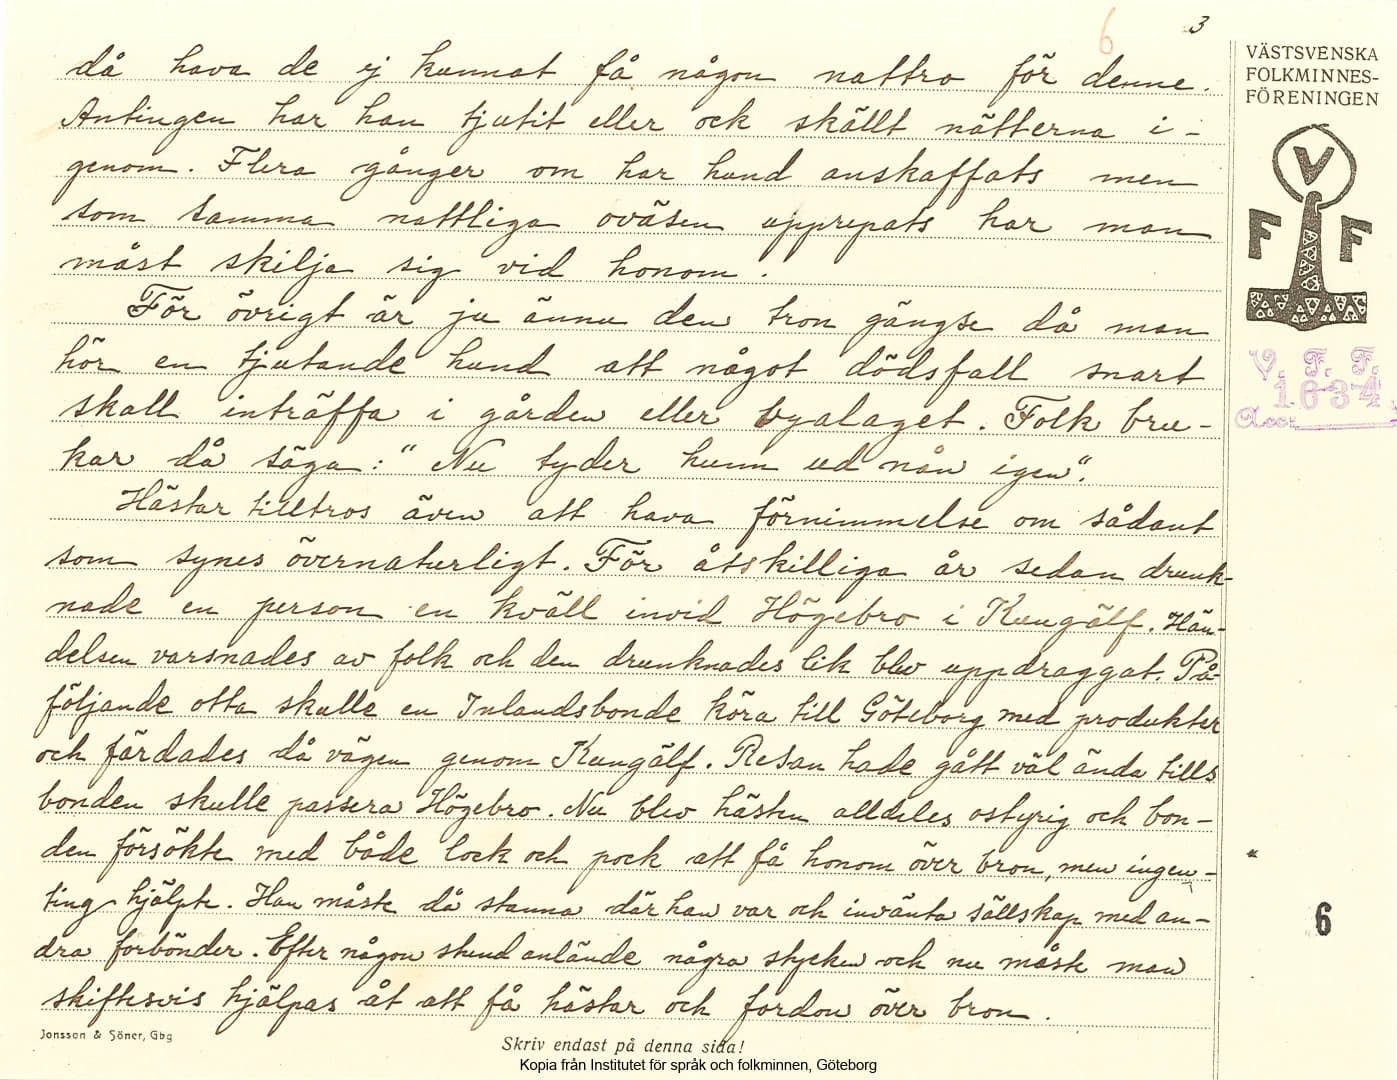 6 3
VÄSTSVENSKA
FOLKMINNES-
FÖRENINGEN
V
F F
V. F. F.
1634
Acc:
då hava de ej kunnat få någon nattro för denne.
Antingen har han tjutit eller ock skällt nätterna i-
genom. Flera gånger om har hund anskaffats men
som samma nattliga oväsen upprepats har man
måst skilja sig vid honom.
För övrigt är ju ännu den tron gängse då man
hör en tjutande hund att något dödsfall snart
skall inträffa i gården eller byalaget. Folk bru-
kar då säga: "Nu tyder hunn ud nån igen".
Hästar tilltros även att hava förnimmelse om sådant
som synes övernaturligt. För åtskilliga år sedan drunk-
nade en person en kväll invid Högebro i Kungälf. Hän-
delsen varsnades av folk och den drunknades lik blev uppdraggat. På-
följande otta skulle en Inlandsbonde köra till Göteborg med produkter
och färdades då vägen genom Kungälf. Resan hade gått väl ända tills
bonden skulle passera Högebro. Nu blev hästen alldeles ostyrig och bon-
den försökte med både lock och pock att få honom över bron, men ingen-
ting hjälpte. Han måste då stanna där han var och invänta sällskap med an-
dra forbönder. Efter någon stund anlände några stycken och nu måste man
skiftesvis hjälpas åt att få hästar och fordon över bron.
6
Jonsson & Söner, Gbg
Skriv endast på denna sida!
Kopia från Institutet för språk och folkminnen, Göteborg